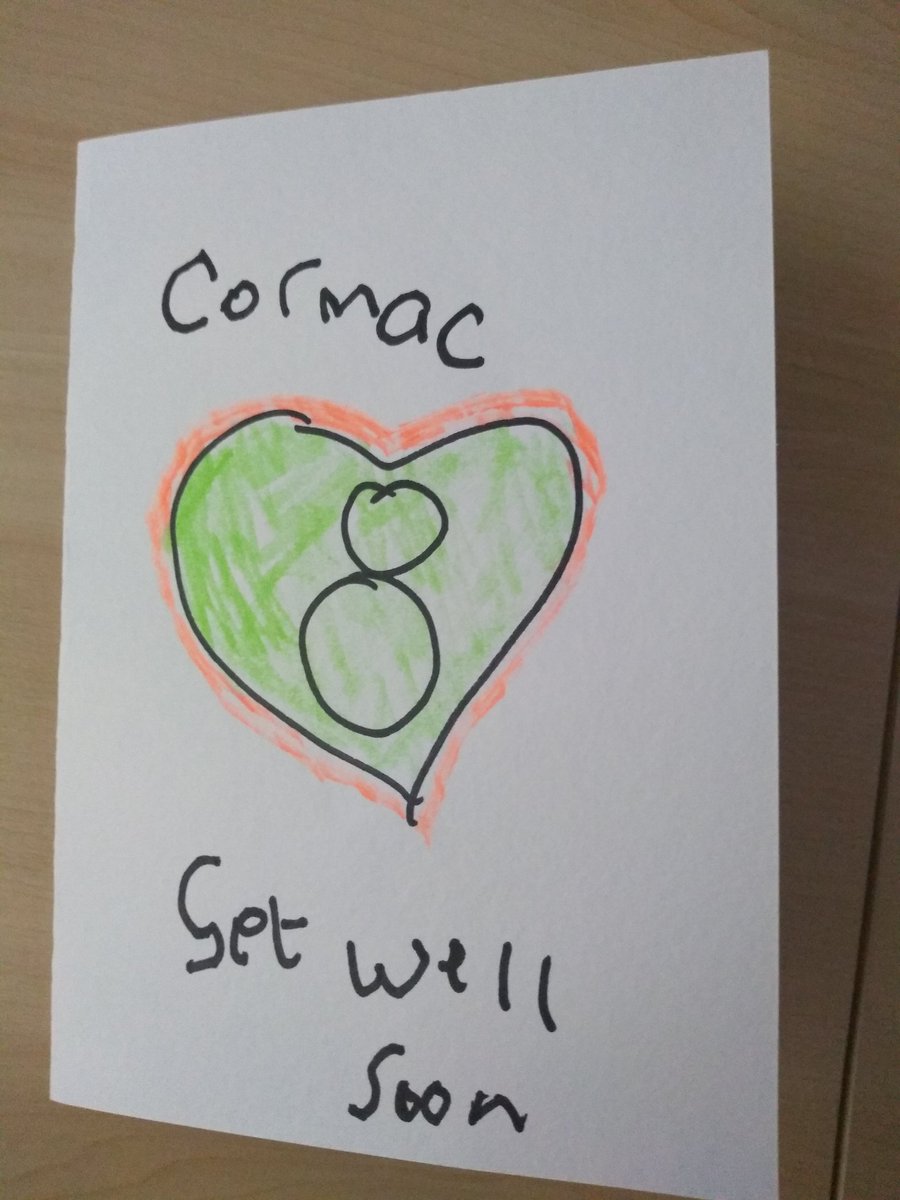 Cormac
Get well
Soon